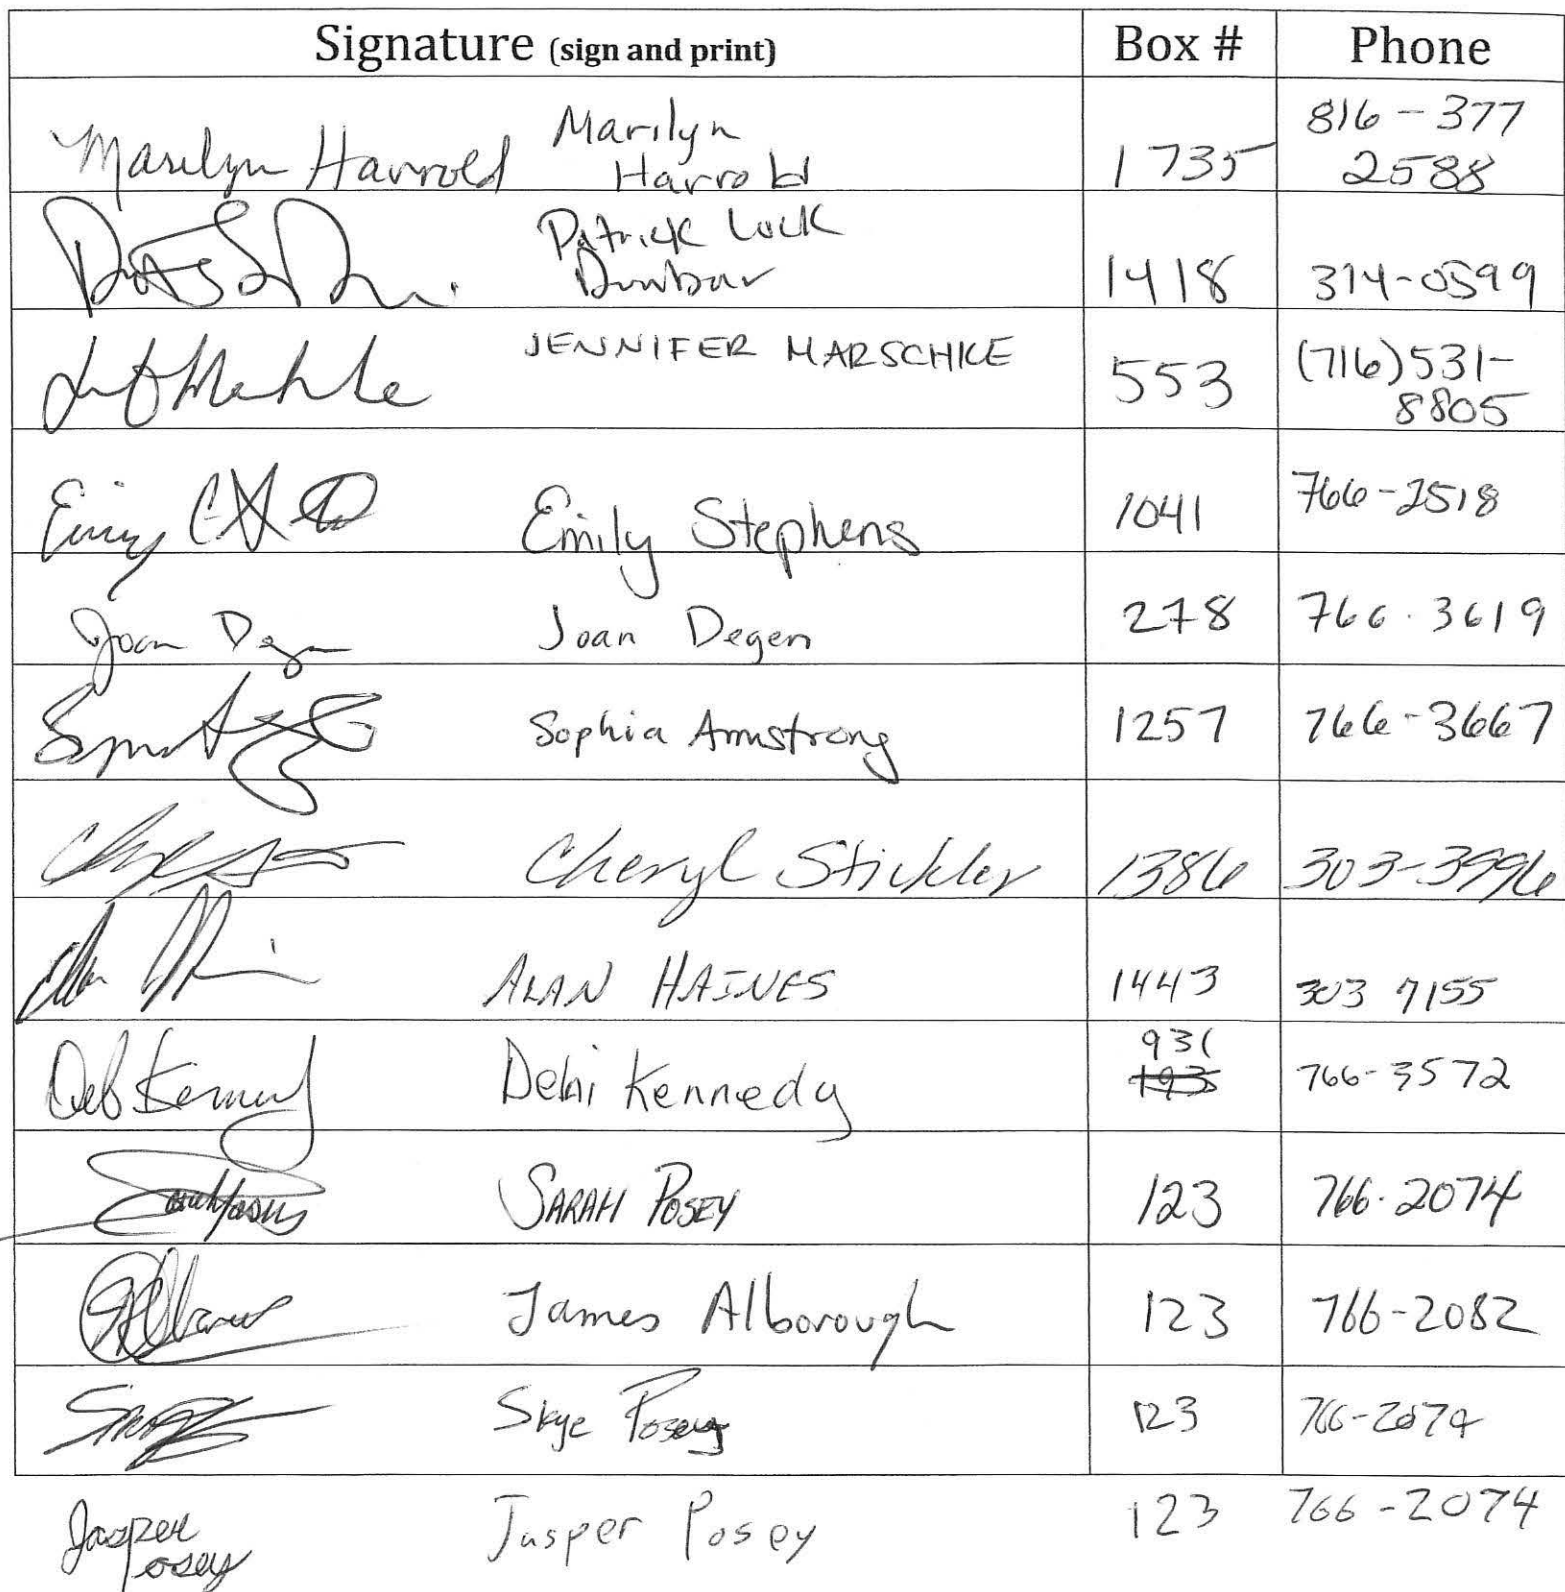 Signature (sign and print) Box # Phone
Marilyn Harrold Marilyn Harrold 1735 816-377 2588
Patrick Luck Dunbar 1418 314-0599
JENNIFER MARSCHKE 553 (716)531-8805
Emily Stephens 1041 766-2518
Joan Degen Joan Degen 278 766.3619
Sophia Armstrong 1257 766-3667
Cheryl Stickler 1386 303-3996
ALAN HAINES 1443 303 7155
Deb Kennedy Debi Kennedy 931 193 766-3572
Sarah Posey SARAH POSEY 123 766-2074
James Alborough 123 766-2082
Skye Posey 123 766-2074
Jasper Posey Jasper Posey 123 766-2074